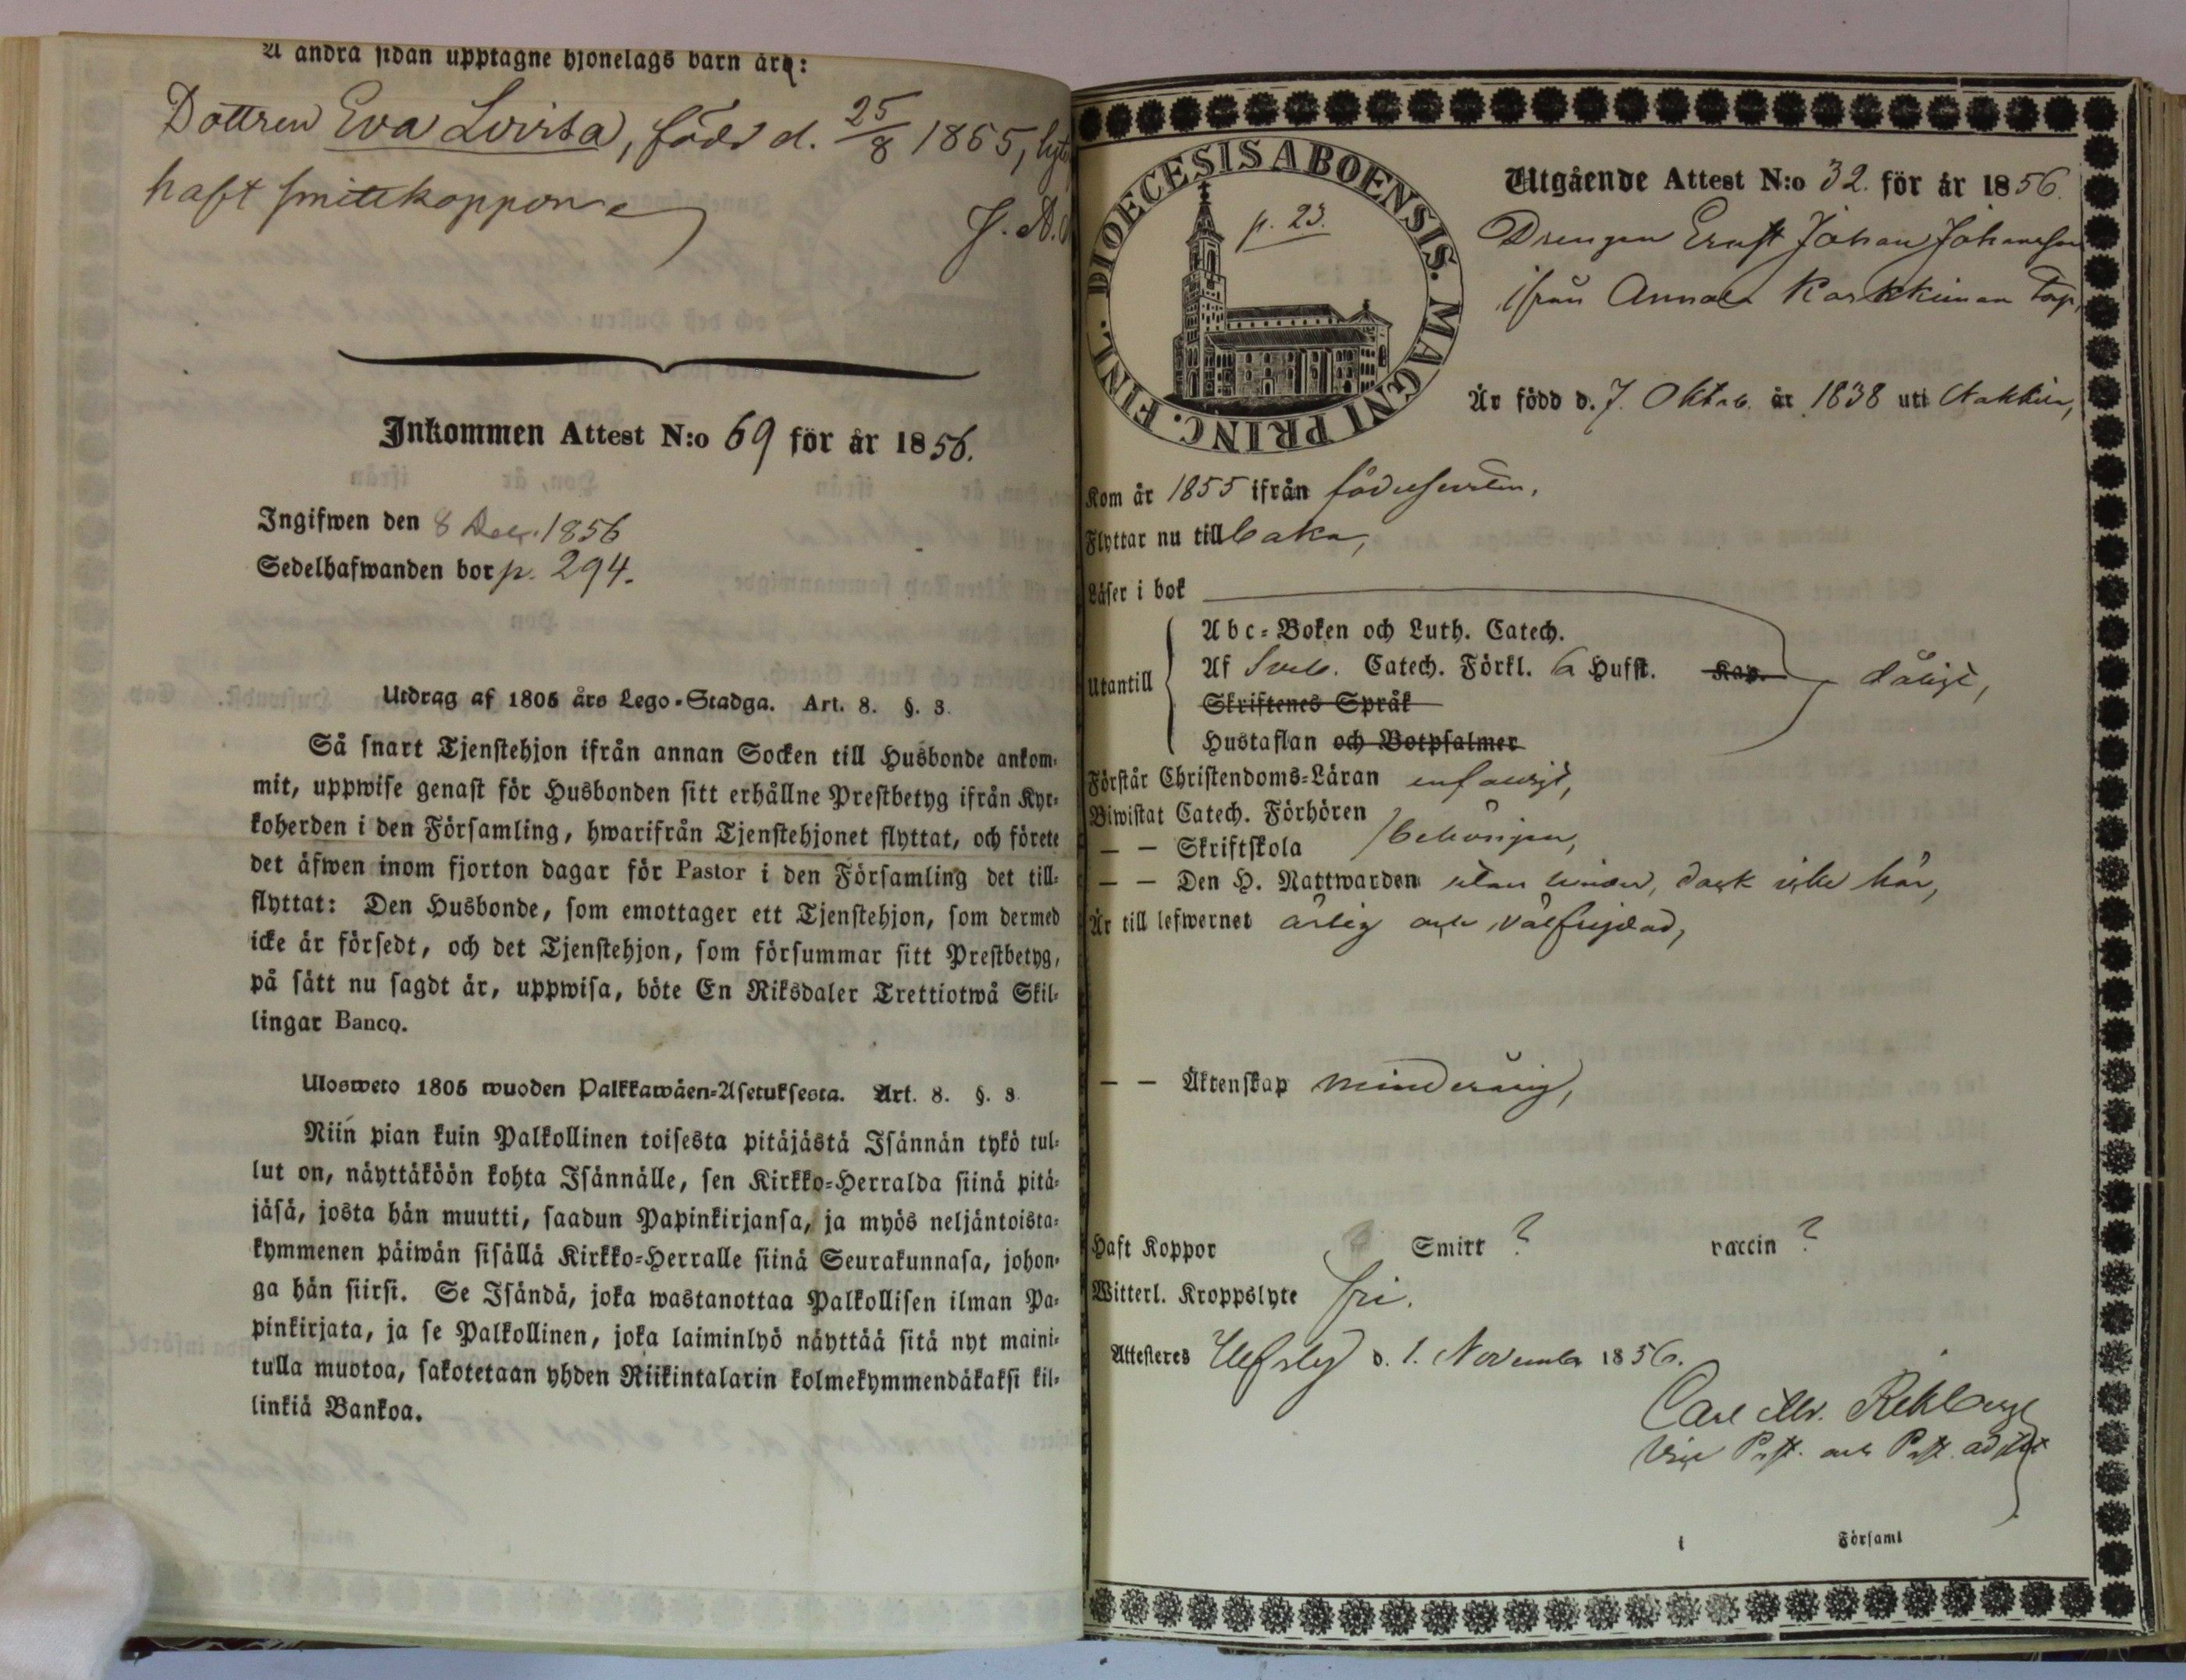 A andra sidan upptagne hjonelags barn äro:
Dottren Eva Lovisa, född d. 25/8 1855,
haft smittkopporne
Inkommen Attest N:o 69 för år 1856.
Ingifwen den 8 Dec. 1856
Sedelhafwanden bor p. 294.
Utdrag af 1805 års Lego-Stadga. Art. 8. §. 3.
Så snart Tjenstehjon ifrån annan Socken till Husbonde ankom-
mit, uppwise genast för Husbonden sitt erhållne Prestbetyg ifrån Kyr-
koherden i den Församling, hwarifrån Tjenstehjonet flyttat, och förete
det äfwen inom fjorton dagar för Pastor i den Församling det till-
flyttat: Den Husbonde, som emottager ett Tjenstehjon, som dermed
icke är försedt, och det Tjenstehjon, som försummar sitt Prestbetyg,
på sätt nu sagdt är, uppwisa, böte En Riksdaler Trettiotwå Skil-
lingar Banco.
Ulosweto 1805 wuoden Palkkawäen-Asetuksesta. Art. 8. §. 3.
Niin pian kuin Palkollinen toisesta pitäjästä Isännän tykö tul-
lut on, näyttäköön kohta Isännälle, sen Kirkko-Herralda siinä pitä-
jäsä, josta hän muutti, saadun Papinkirjansa, ja myös neljäntoista-
kymmenen päiwän sisällä Kirkko-Herralle siinä Seurakunnasa, johon-
ga hän siirsi. Se Isändä, joka wastanottaa Palkollisen ilman Pa-
pinkirjata, ja se Palkollinen, joka laiminlyö näyttää sitä nyt maini-
tulla muotoa, sakotetaan yhden Riikintalarin kolmekymmendäkaksi kil-
linkiä Bankoa.
DIOECESIS ABOENSIS. MAGNI PRINC. FINL.
p. 23.
Utgående Attest N:o 32. för år 1856.
Drengen Ernst Johan Johansson
ifrån Annala Karkkiman Torp,
Är född d. 7. Oktob. år 1838 uti Nakkila,
Kom år 1855 ifrån födelseorten,
Flyttar nu tillbaka,
Läser i bok
Utantill
Abc-Boken och Luth. Catech.
Af Sveb. Catech. Förkl. 6 Hufst. Kap. dåligt,
Skriftenes Språk
Hustaflan och Botpsalmer
Förstår Christendoms-Läran enfaldigt,
Biwistat Catech. Förhören
— — Skriftskola behörigen,
— — Den H. Nattwarden utan hinder, dock icke här,
Är till lefwernet ärlig och välfrejdad,
— — Äktenskap minderårig,
Haft Koppor Smitt ? vaccin ?
Witterl. Kroppslyte fri.
Attesteres Ulfsby d. 1. November 1856.
Carl Alr. Rehberg
Vice Past. och Past. adjkt
i Församl